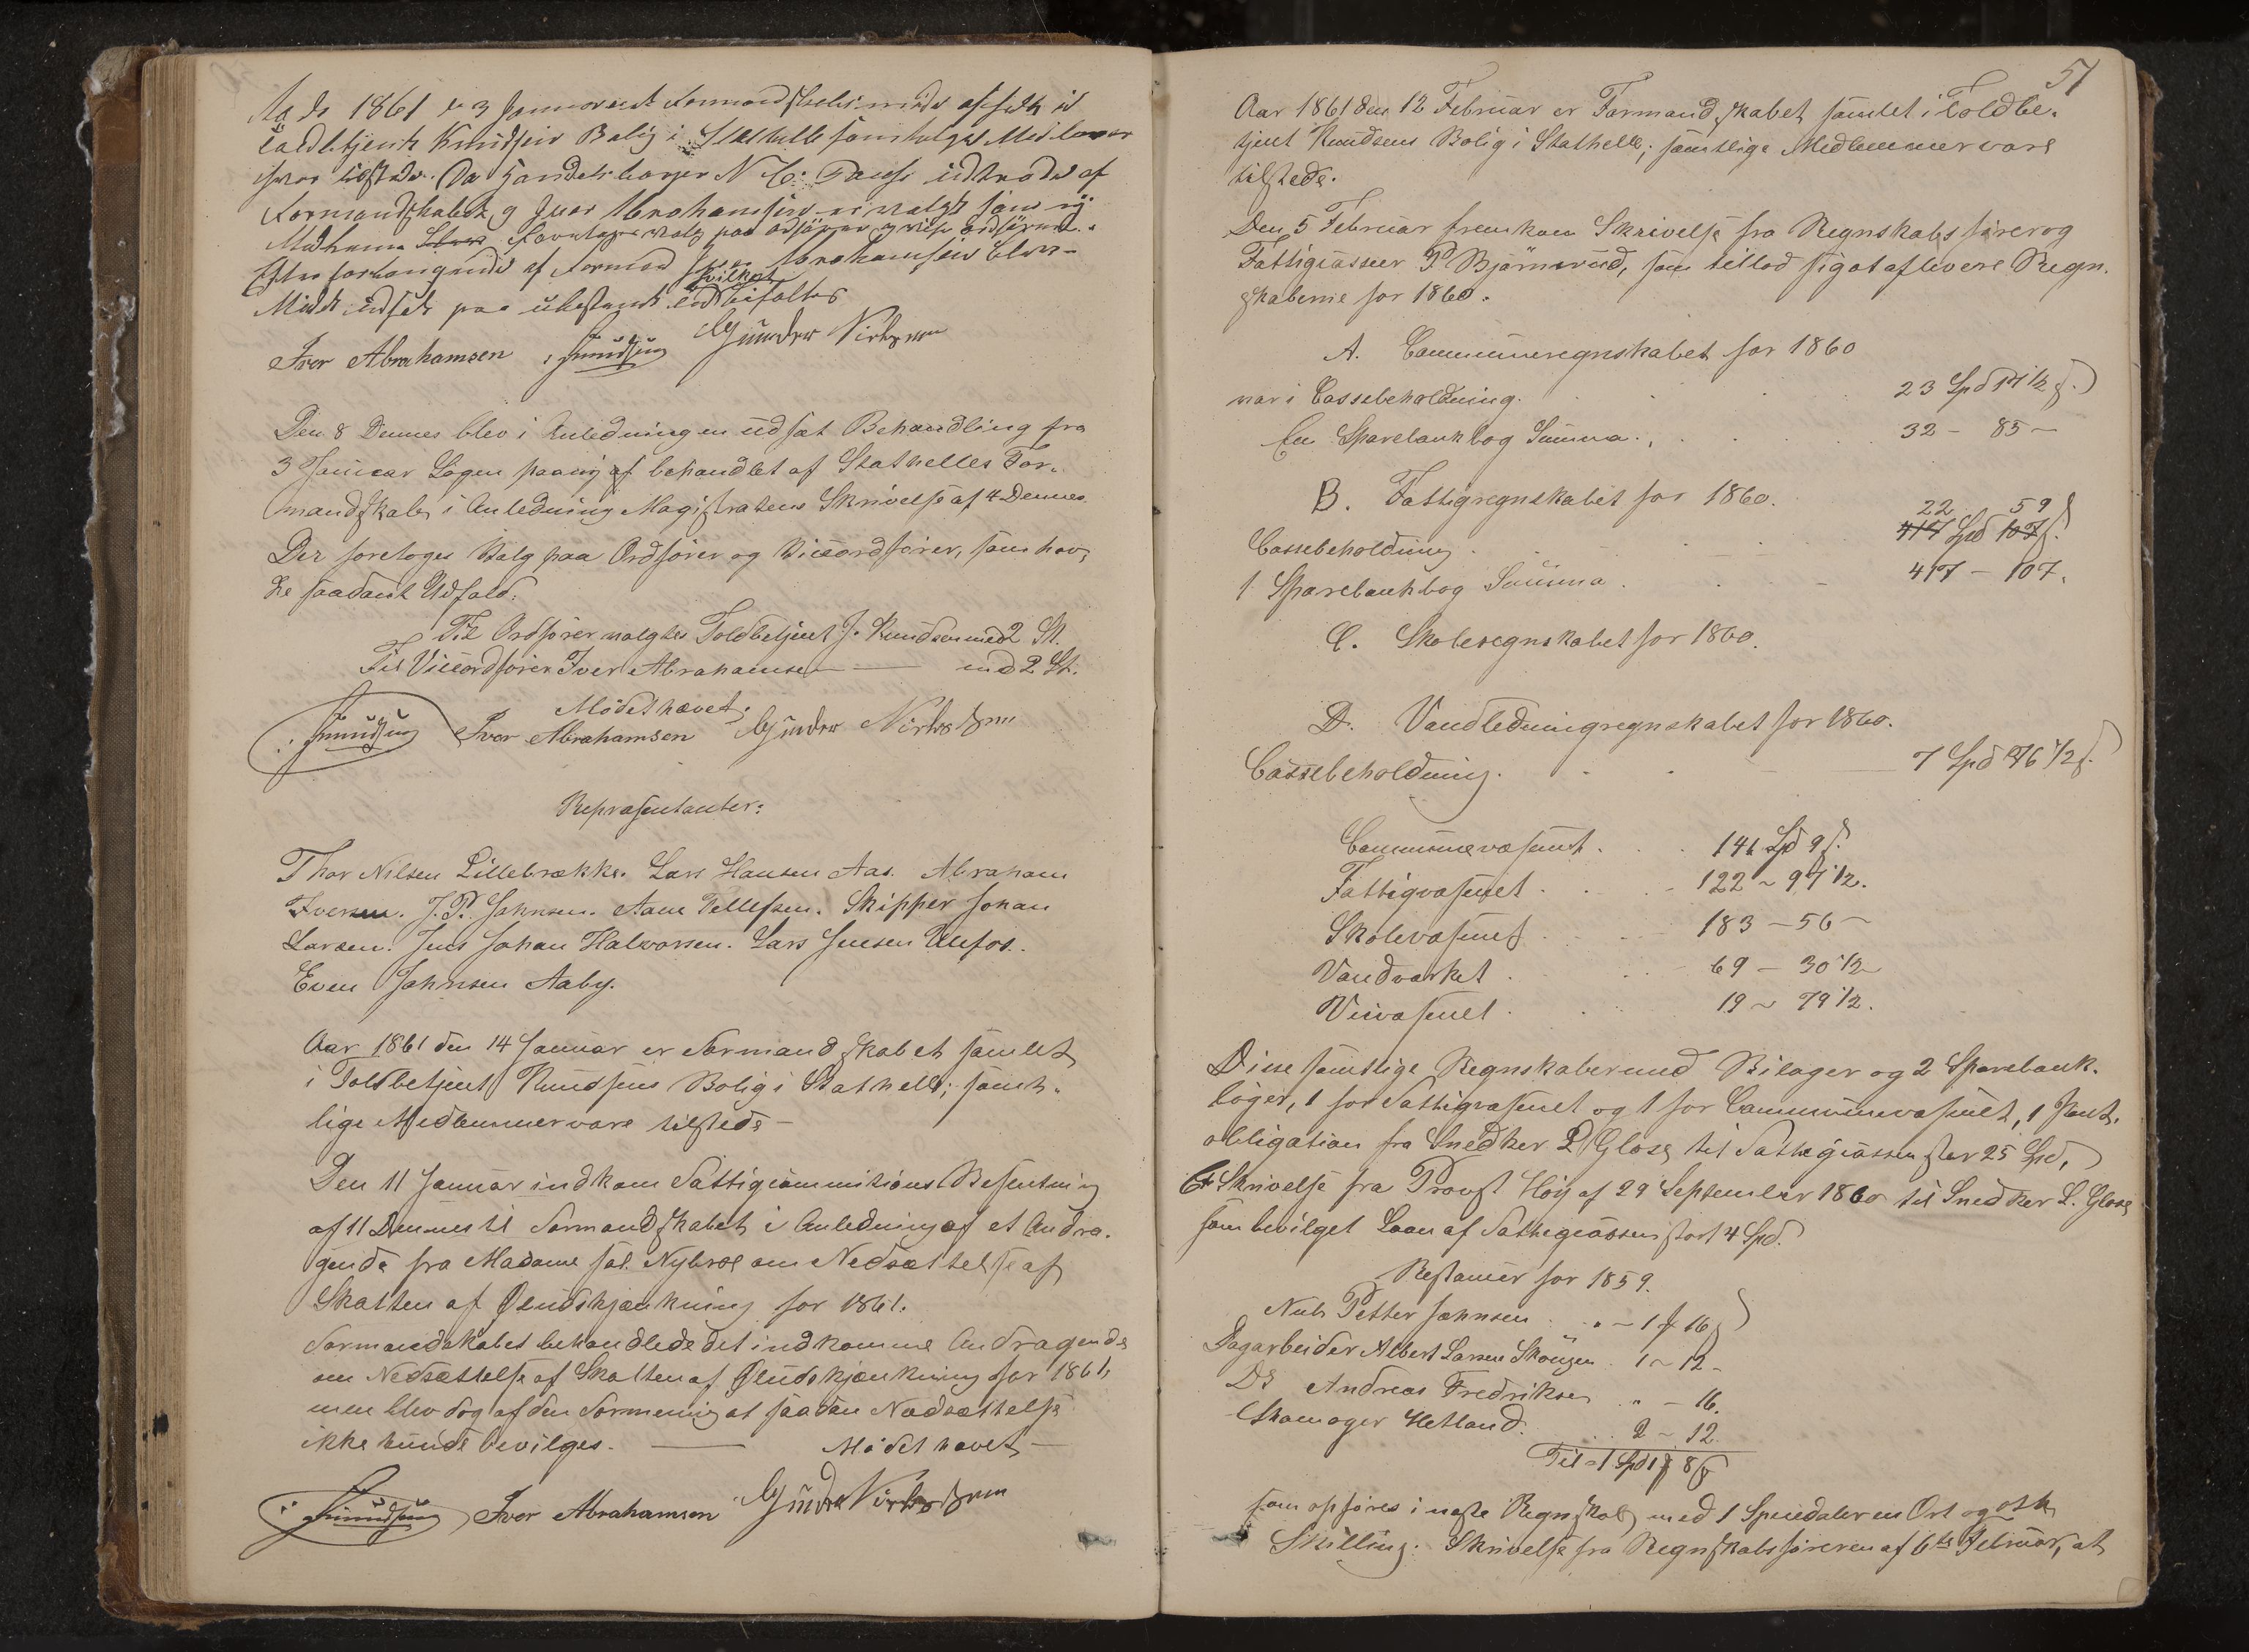 1861 3 Formandskabs møde
Toldbetjent Knudsens Bolig i Stathelle samtlige Medlemmer
tilstede. Da Handelsborger N. C. udtrædes af
Formandskabet, og Iver Abrahamsen er valgt som ny
valg paa ordfører og
Efter forlangende af Formand Iver Abrahamsen blev
hvilket
Mødet udsat paa ubestemt bifaltes
Iver Abrahamsen JKnudsen Gunder
Den 8 Dennes blev i Anledningen udsat Behandling fra
3 Januar Sagen paany af behandlet af Stathelles For-
mandskab i Anledning Magistratens Skrivelse af 4 Dennes
Der foretoges Valg paa Ordfører og Viceordfører, som hav-
de saadant Udfald:
Til Ordfører valgtes Toldbetjent J. Knudsen med 2 St.
Til Viceordfører Iver Abrahamsen — med 2 St.
Mødet hævet.
JKnudsen Iver Abrahamsen Gunder
Repræsentanter:
Thor Nilsen Lillebrække. Lars Hansen Aas. Abraham
Iversen. J. P. Johnsen. Aane Tellefsen. Skipper Johan
Larsen. Jens Johan Halvorsen. Lars Jensen Ulefos.
Even Johnsen Aaby.
Aar 1861 den 14 Januar er Formandskabet samlet
i Toldbetjent Knudsens Bolig i Stathelle; samt-
lige Medlemmer vare tilstede —
Den 11 Januar indkom Fattigcommitions
af 11 Dennes til Formandskabet i Anledning af et Andra-
gende fra Madame sal. Nybroe om Nedsættelse af
Skatten af Øludskjænkning for 1861.
Formandskabet behandlede det indkomne Andragende
om Nedsættelse af Skatten af Øludskjænkning for 1861,
men blev dog af den Formening at saadan Nedsættelse
ikke kunde bevilges. — Mødet hævet —
JKnudsen Iver Abrahamsen Gunder
51
Aar 1861 den 12 Februar er Formandskabet samlet i Toldbe-
tjent Knudsens Bolig i Stathelle; samtlige Medlemmer vare
tilstede.
Den 5 Februar fremkom Skrivelse fra Regnskabsfører og
Fattigcasserer P Bjørnerud, som tillod sig at aflevere Regn-
skaberne for 1860.
A. Communeregnskabet for 1860
var i Cassebeholdning. 23 Spd
En Sparebankbog Summa. 32 - 85 -
B. Fattigregnskabet for 1860.
22 59
Cassebeholdning 417 Spd 107 s.
1 Sparebankbog Summa. 417 - 107.
C. Skoleregnskabet for 1860.
D. Vandledningregnskabet for 1860.
Cassebeholdning. 7 Spd 76 1/2 s.
Communevæsenet. 141 Spd 9 s.
Fattigvæsenet 122 - 97 1/2.
Skolevæsenet 183 - 56 -
Vandværket 69 - 30 1/2
Veivæsenet 19 - 79 1/2.
Disse samtlige Regnskaber med Bilager og 2 Sparebank-
bøger, 1 for Fattigvæsenet og 1 for Communevæsenet, 1 Pant-
obligation fra Snedker L Glose til Fattigcassen stor 25 Spd,
Skrivelse fra Provst Høy af 29 September 1860 til Snedker L. Glose
som bevilget Laan af Fattigcassen stort 4 Spd.
Restancer for 1859.
Nils Petter Johnsen " - 1 16
Dagarbeider Albert Larsen 1 - 12 -
Do Andreas Fredriksen " - 16.
Skomager Hetland. 2 - 12
Til = 1 Spd 1 8
som opføres i næste Regnskab med 1 Speciedaler en Ort og otte
Skilling. Skrivelse fra Regnskabsføreren af 6te Februar, at